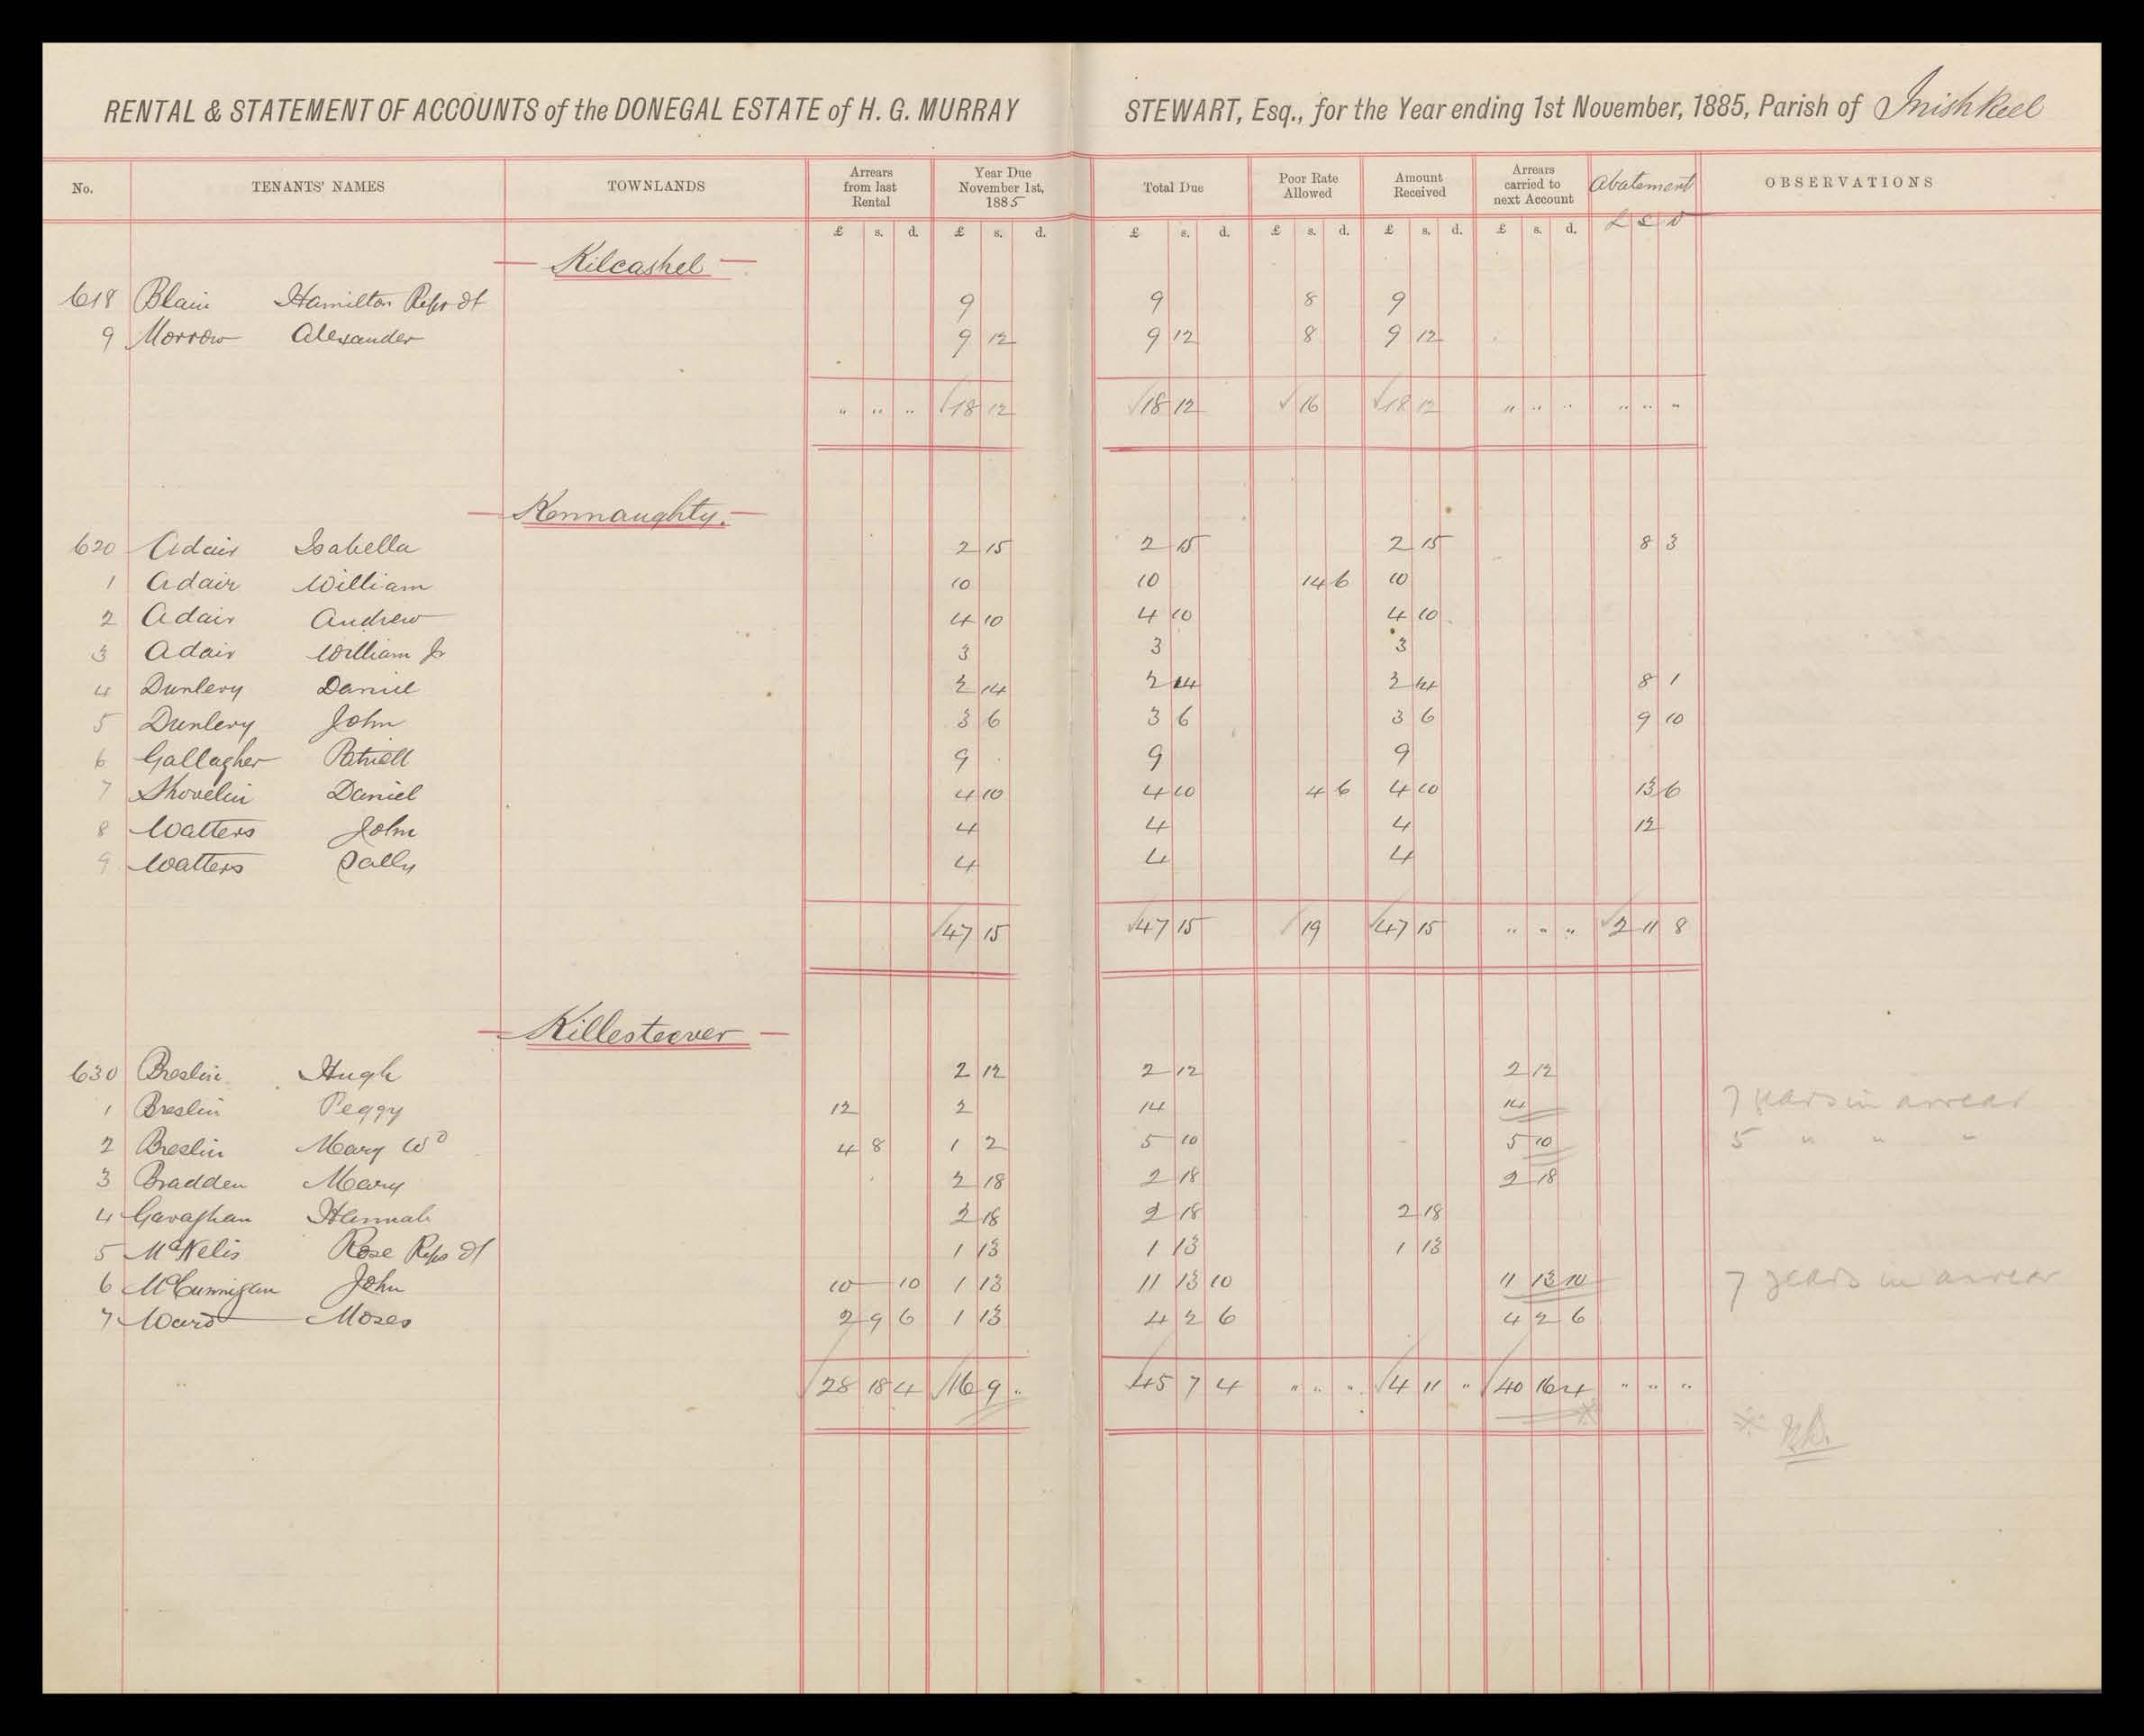 RENTAL & STATEMENT OF ACCOUNTS of the DONEGAL ESTATE of H. G. MURRAY STEWART, Esq., for the Year ending 1st November, 1885, Parish of Inishkeel
No. TENANTS' NAMES TOWNLANDS Arrears from last Rental Year Due November 1st, 1885 Total Due Poor Rate Allowed Amount Received Arrears carried to next Account Abatement OBSERVATIONS
£ s. d. £ s. d. £ s. d. £ s. d. £ s. d. £ s. d. £ S D
Kilcashel
618 Blain Hamilton Reps of 9 9 8 9
9 Morrow Alexander 9 12 9 12 8 9 12
" " " 18 12 18 12 16 18 12 " " " " " "
Kennaughty.
620 Adair Isabella 2 15 2 15 2 15 8 3
1 Adair William 10 10 14 6 10
2 Adair Andrew 4 10 4 10 4 10
3 Adair William Jr 3 3 3
4 Dunlevy Daniel 2 14 2 14 2 14 8 1
5 Dunlevy John 3 6 3 6 3 6 9 10
6 Gallagher Patrick 9 9 9
7 Shovelin Daniel 4 10 4 10 4 6 4 10 13 6
8 Watters John 4 4 4 12
9 Watters Sally 4 4 4
47 15 47 15 19 47 15 " " " 2 11 8
Killesteever
630 Breslin Hugh 2 12 2 12 2 12
1 Breslin Peggy 12 2 14 14 7 years in arrear
2 Breslin Mary Wd 4 8 1 2 5 10 5 10 5 " " "
3 Bradden Mary 2 18 2 18 2 18
4 Gavaghan Hannah 2 18 2 18 2 18
5 McNelis Rose Reps of 1 13 1 13 1 13
6 McCunnigan John 10 — 10 1 13 11 13 10 11 13 10 7 years in arrear
7 Ward Moses 2 9 6 1 13 4 2 6 4 2 6
28 18 4 16 9 " 45 7 4 " " " 4 11 " 40 16 4 " " "